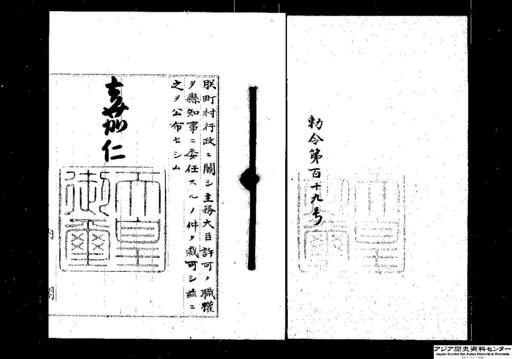 勅令第百十九号
朕町村行政ニ関シ主務大臣許可ノ職権
ヲ県知事ニ委任スルノ件ヲ裁可シ茲ニ
之ヲ公布セシム
嘉仁
天皇
御璽
内閣
アジア歴史資料センター
Japan Center for Asian Historical Records